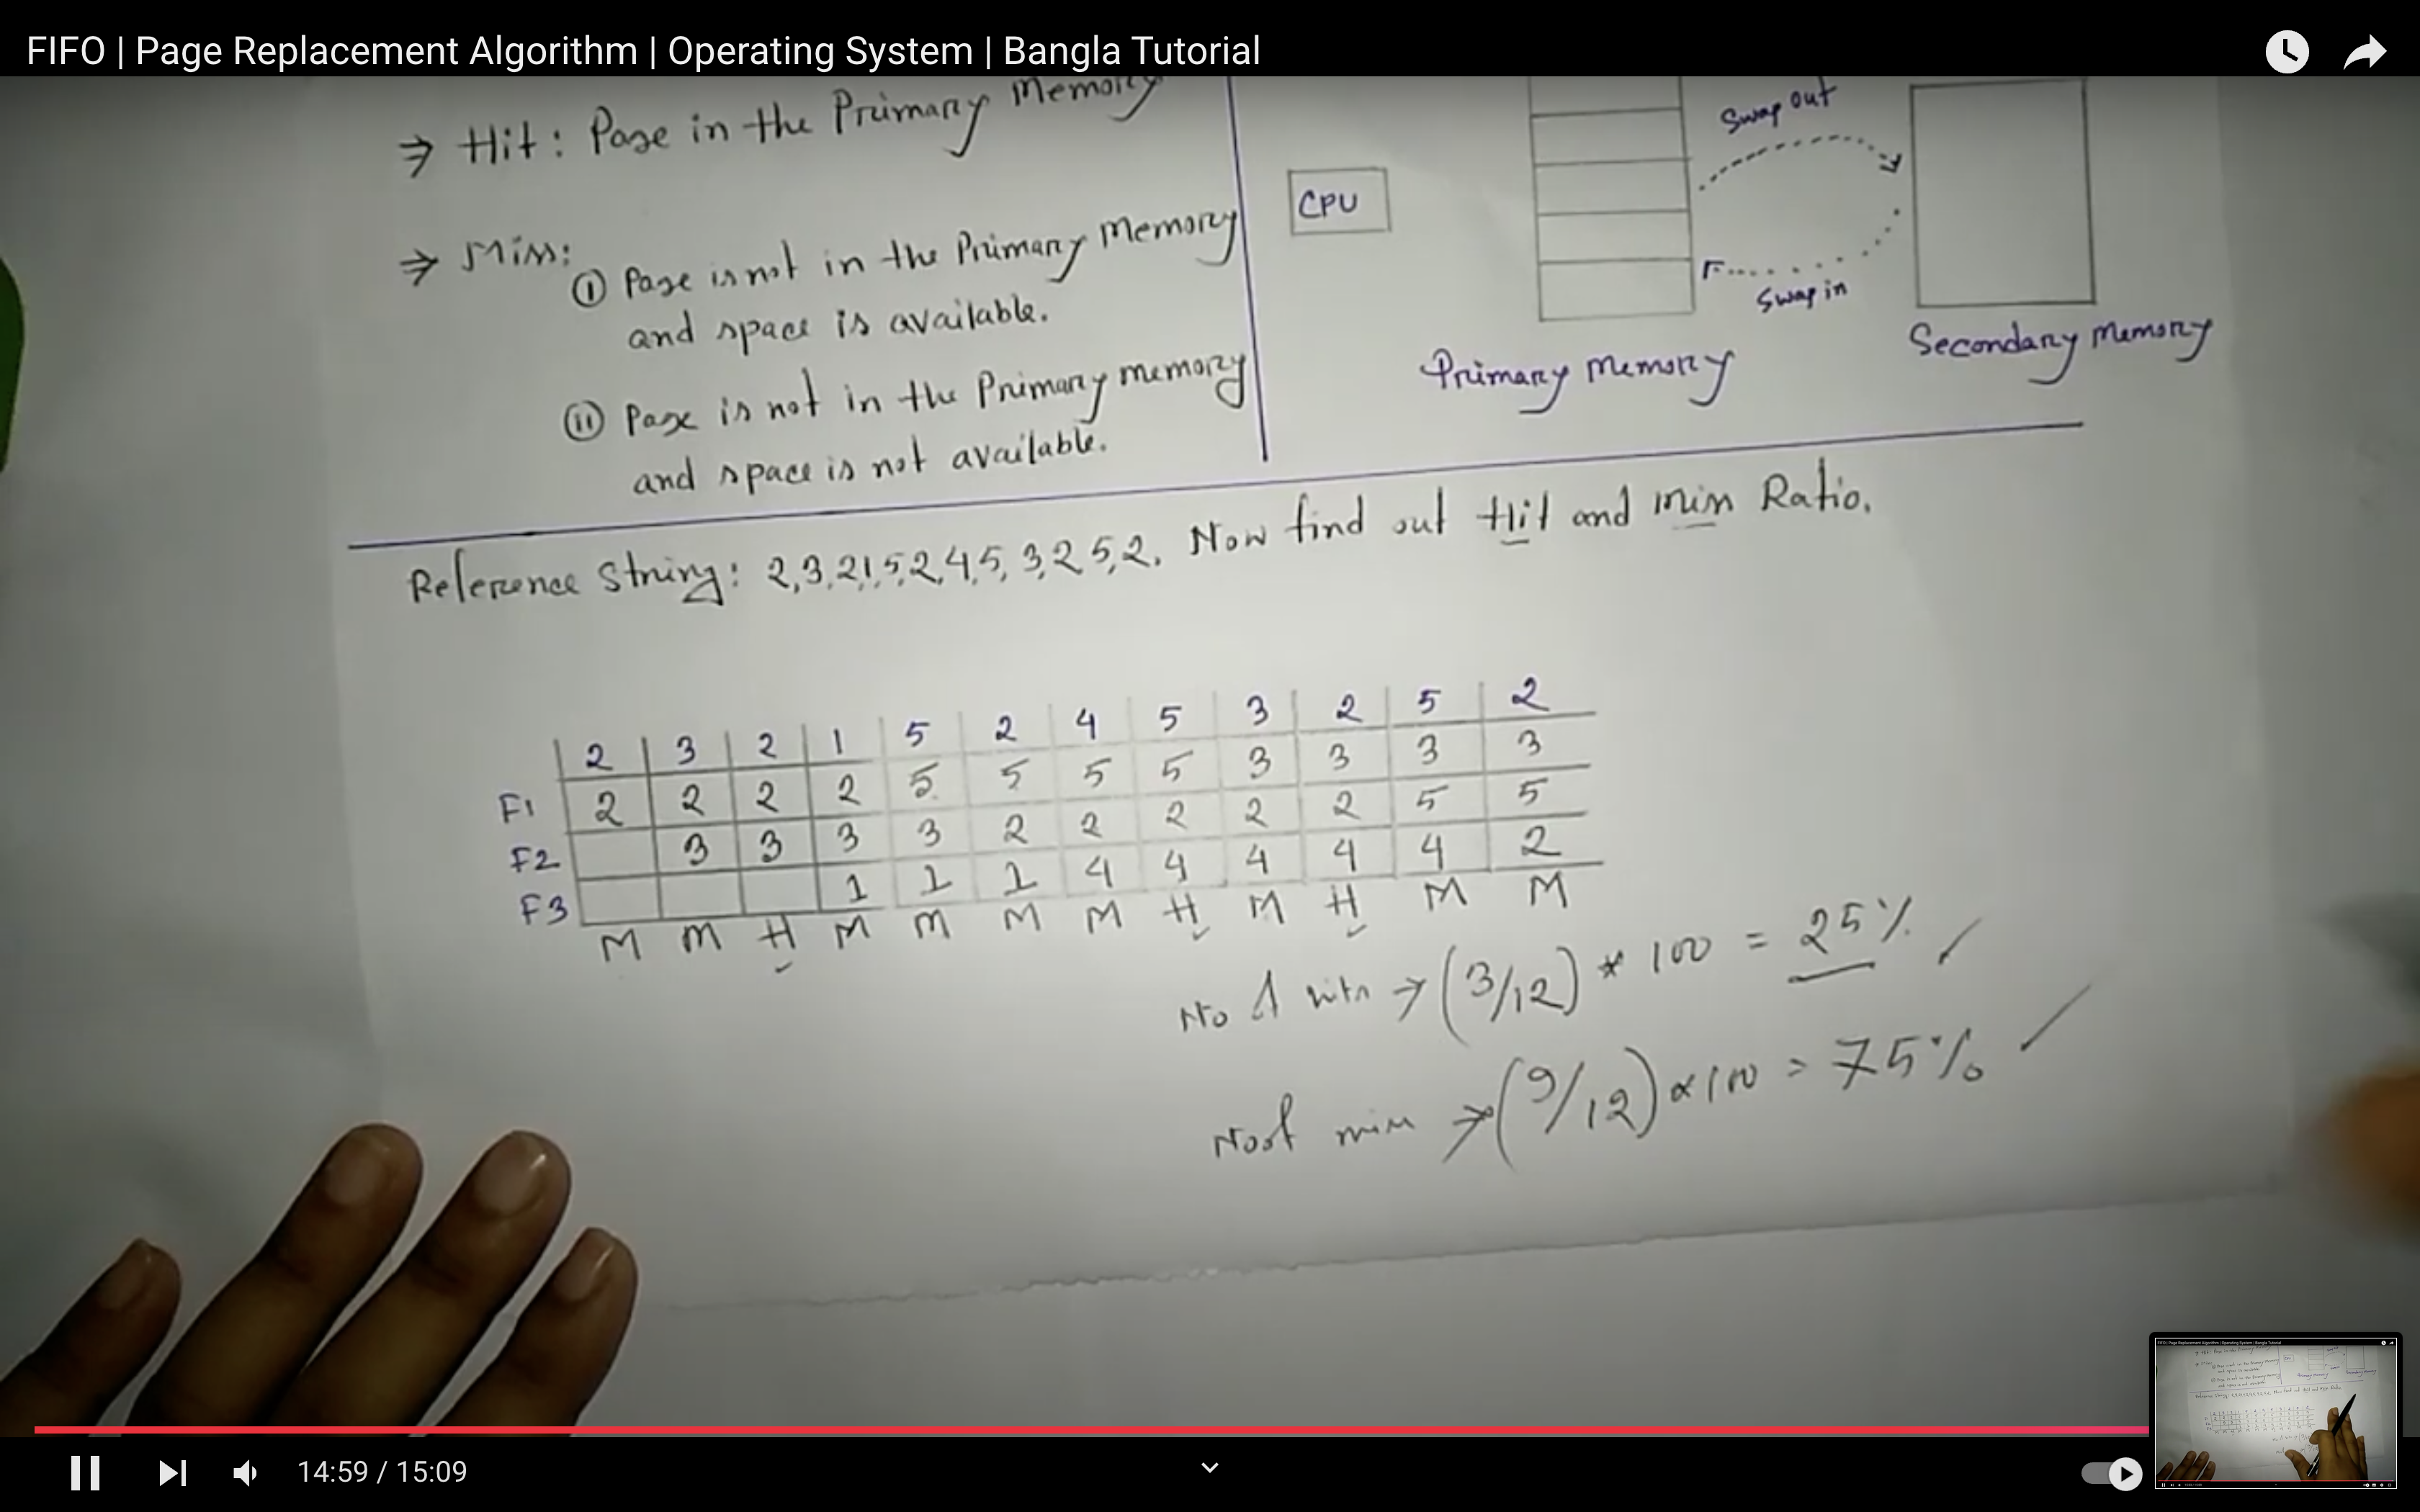 FIFO | Page Replacement Algorithm | Operating System | Bangla Tutorial
⇒ Hit: Page in the Primary Memory
⇒ Miss:
① Page is not in the Primary Memory
and space is available.
② Page is not in the Primary memory
and space is not available.
Swap out
CPU
Swap in
Primary Memory
Secondary Memory
Reference String: 2,3,2,1,5,2,4,5,3,2,5,2. Now find out Hit and miss Ratio.
2 3 2 1 5 2 4 5 3 2 5 2
F1 2 2 2 2 5 5 5 5 3 3 3 3
F2 3 3 3 3 2 2 2 2 2 5 5
F3 1 1 1 4 4 4 4 4 2
M M H M M M M H M H M M
No of hits → (3/12) * 100 = 25%
No of miss → (9/12) * 100 = 75%
14:59 / 15:09